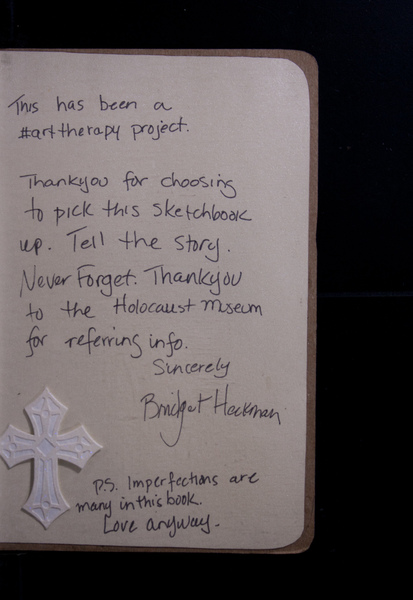 This has been a
#art therapy project.
Thankyou for choosing
to pick this sketchbook
up. Tell the story.
Never Forget. Thankyou
to the Holocaust Museum
for referring info.
Sincerely
Bridget Heckman
P.S. Imperfections are
many in this book.
Love anyway.